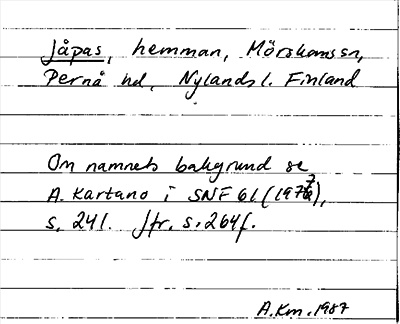 Jåpas, hemman, Mörskomssn,
Pernå hd, Nylands l. Finland
Om namnets bakgrund se
A. Kartano i SNF 61 (1977),
s. 241. Jfr. s. 264f.
A.Km. 1987